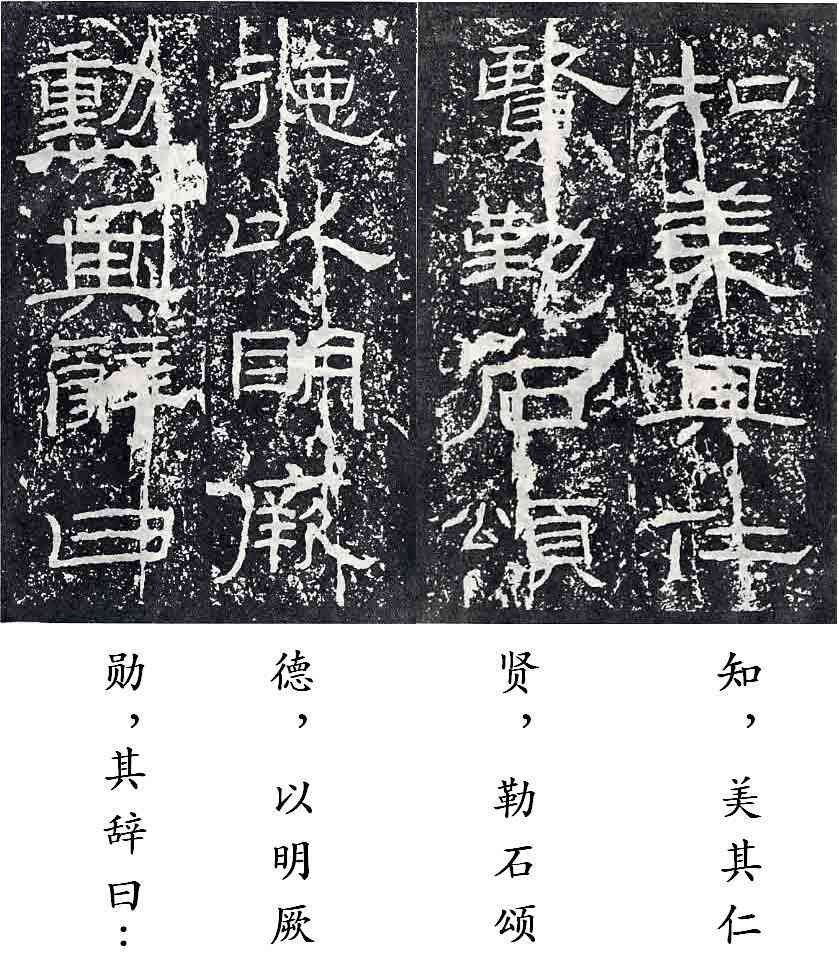 知美其仁
賢勒石頌
德以明厥
勳其辭曰
知，美其仁
贤，勒石颂
德，以明厥
勋，其辞曰：